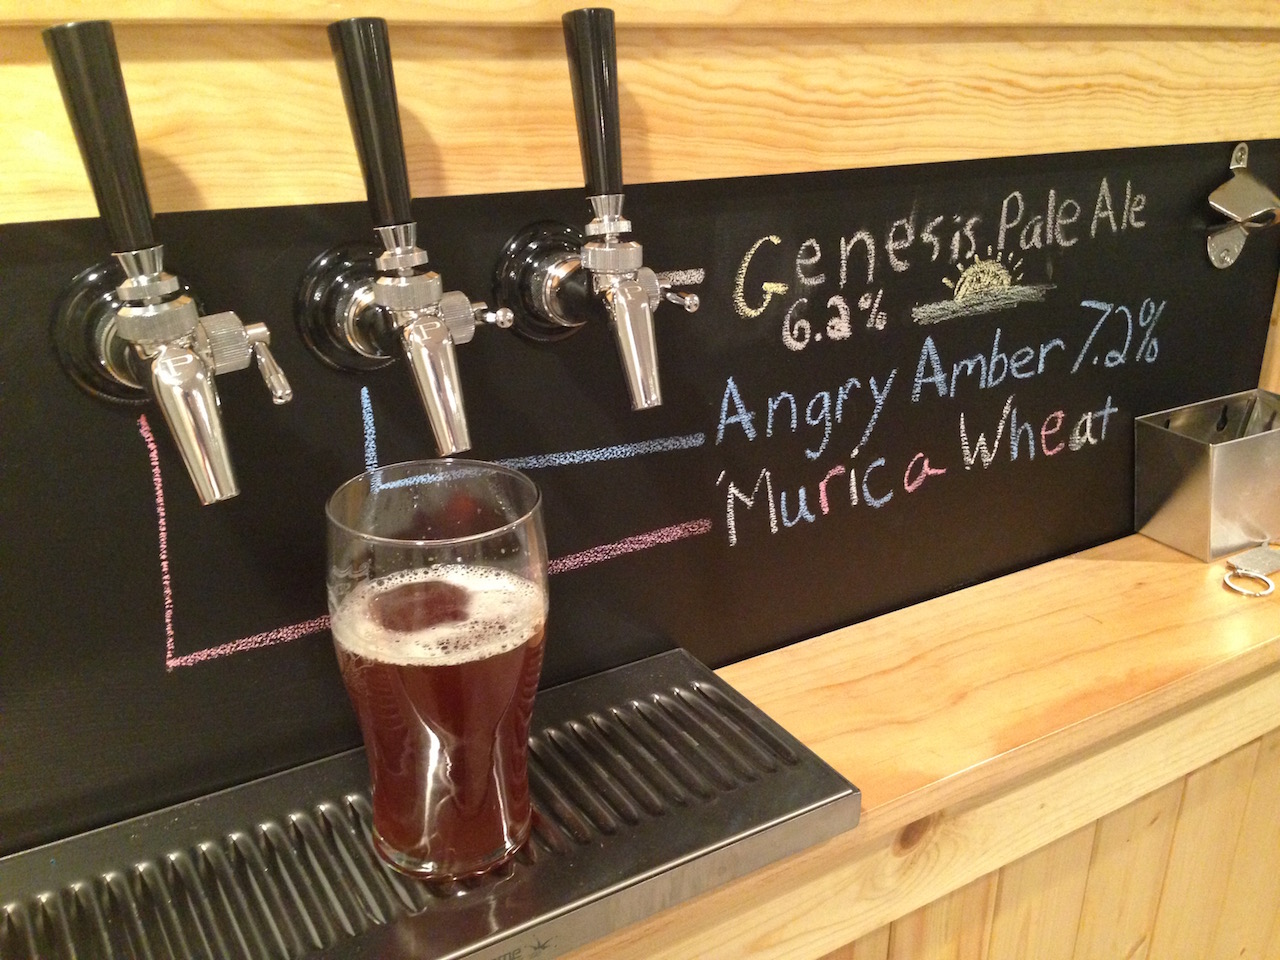 Genesis Pale Ale
6.2%
Angry Amber 7.2%
'Murica Wheat
P
P